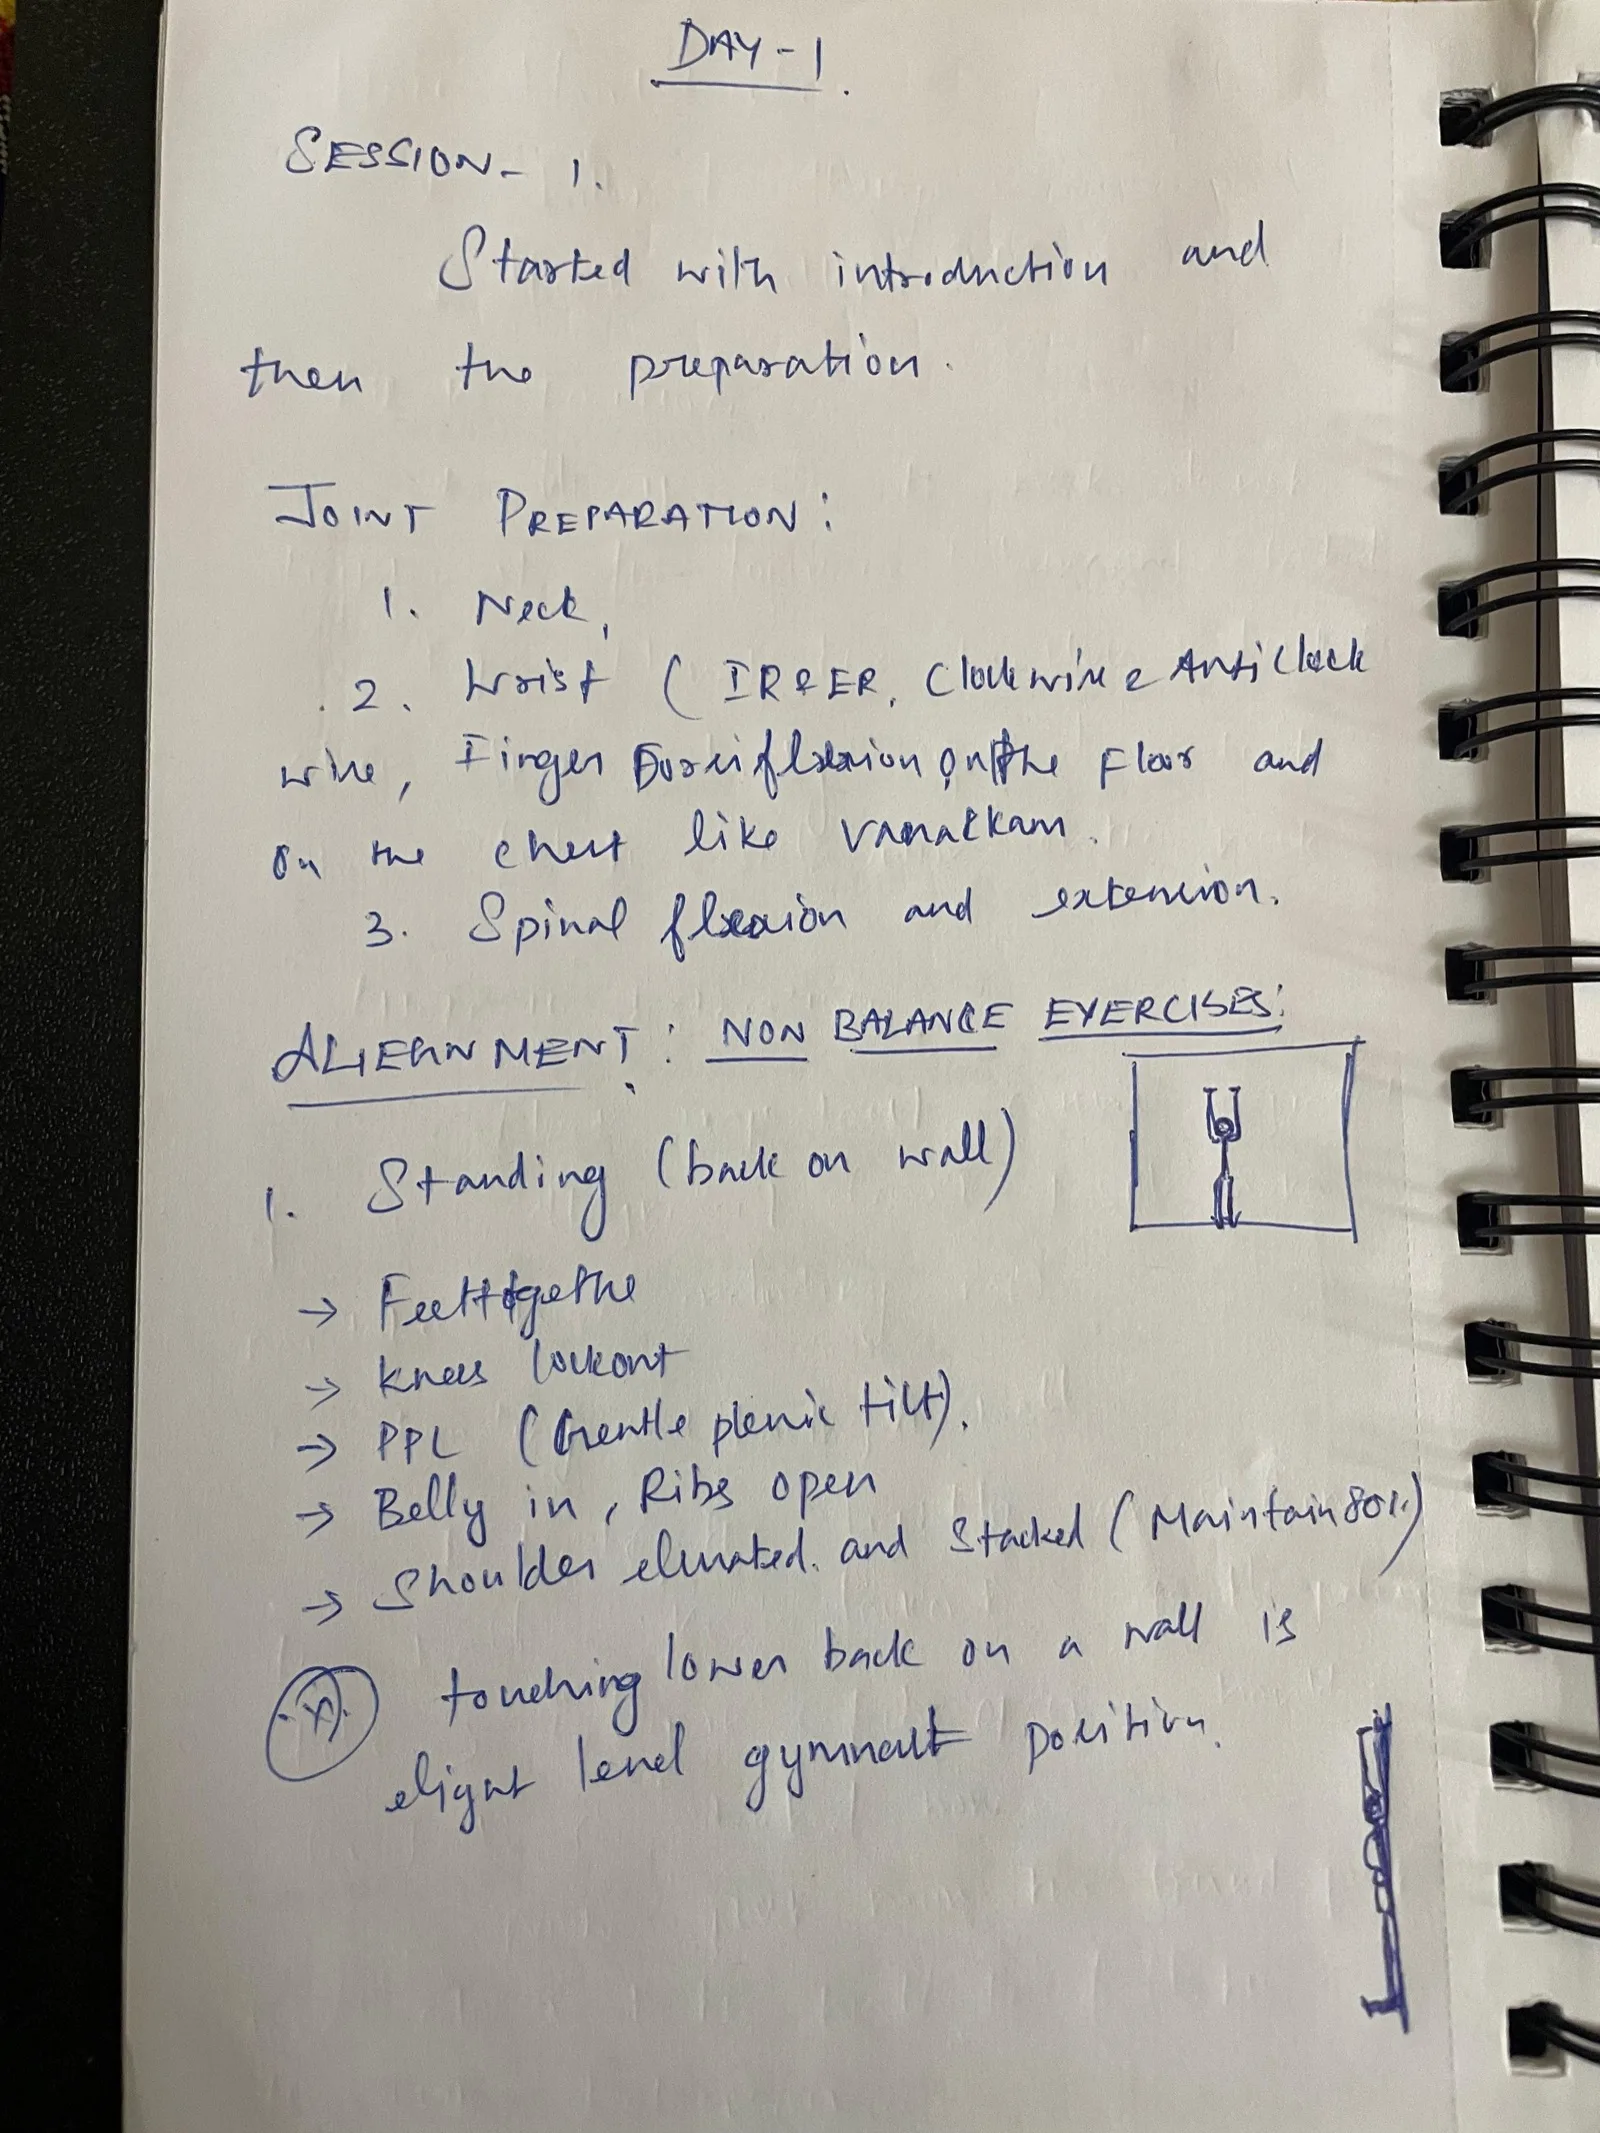 DAY - 1.
SESSION - 1.
Started with introduction and
then the preparation.
JOINT PREPARATION:
1. Neck,
2. Wrist (IR & ER, Clockwise & Anti Clock
wise, Finger Dorsiflexion on the Floor and
on the chest like Vanakkam.
3. Spinal flexion and extension.
ALIEGNMENT: NON BALANCE EXERCISES:
1. Standing (back on wall)
→ Feet togethe
→ Knees lockout
→ PPL (Gentle plevic tilt).
→ Belly in, Ribs open
→ Shoulder elevated. and Stacked (Maintain 80%)
touching lower back on a wall is
level gymnast position.